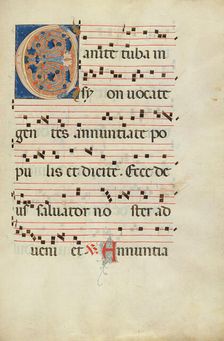 Canite tuba in
sy on vocate
gen tes annuntiate po
pu lis et dicite. Ecce de
us salvator no ster ad
veni et ℟ Annuntia